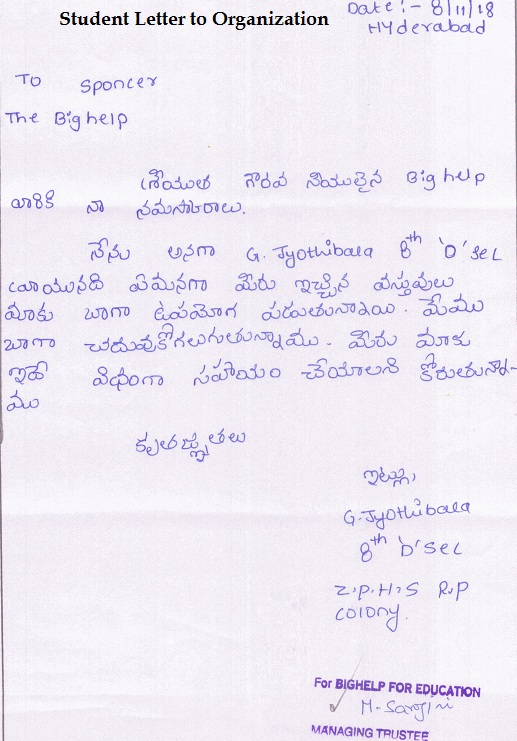 Student Letter to Organization
Date :- 8/11/18
Hyderabad
To Sponcer
The Big help
శ్రీయుత గౌరవ నీయులైన Big help
వారికి నా నమస్కారాలు.
నేను అనగా G. Jyothibala 8th 'D' sec
వ్రాయునది ఏమనగా మీరు ఇచ్చిన వస్తువులు
మాకు బాగా ఉపయోగ పడుతున్నాయి. మేము
బాగా చదువుకోగలుగుతున్నాము. మీరు మాకు
ఇదే విధంగా సహాయం చేయాలని కోరుతున్నా-
ము
కృతజ్ఞతలు
ఇట్లు,
G. Jyothibala
8th 'D' sec
Z.P.H.S R.P
colony.
For BIGHELP FOR EDUCATION
M. Sarojini
MANAGING TRUSTEE